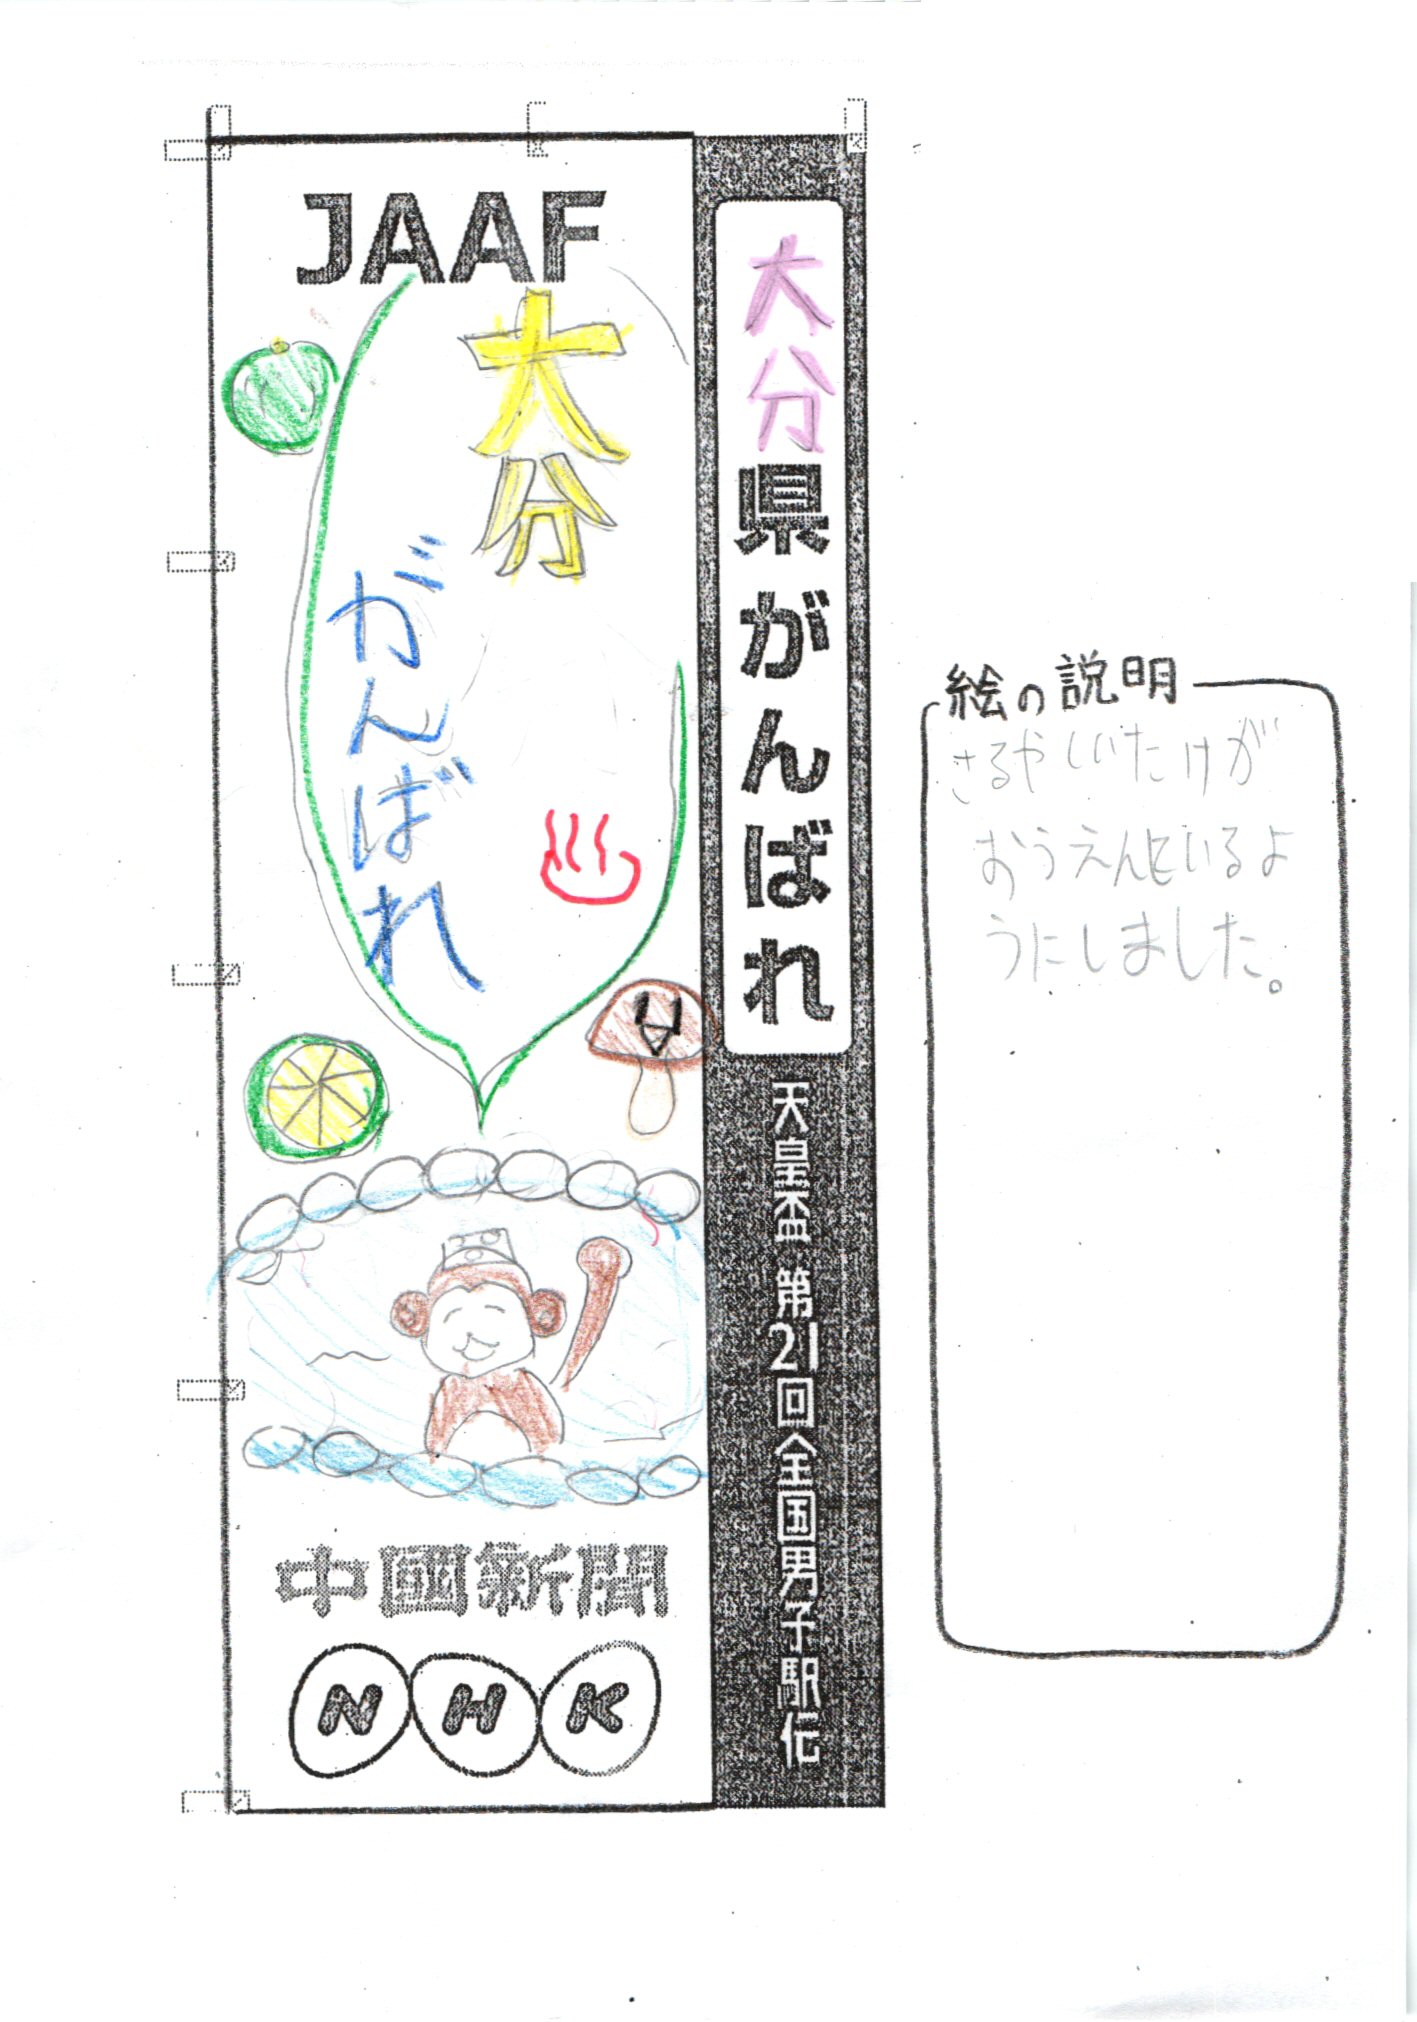 JAAF
大分
がんばれ
中國新聞
NHK
大分県がんばれ
天皇盃 第21回全国男子駅伝
絵の説明
さるやしいたけが
おうえんしているよ
うにしました。